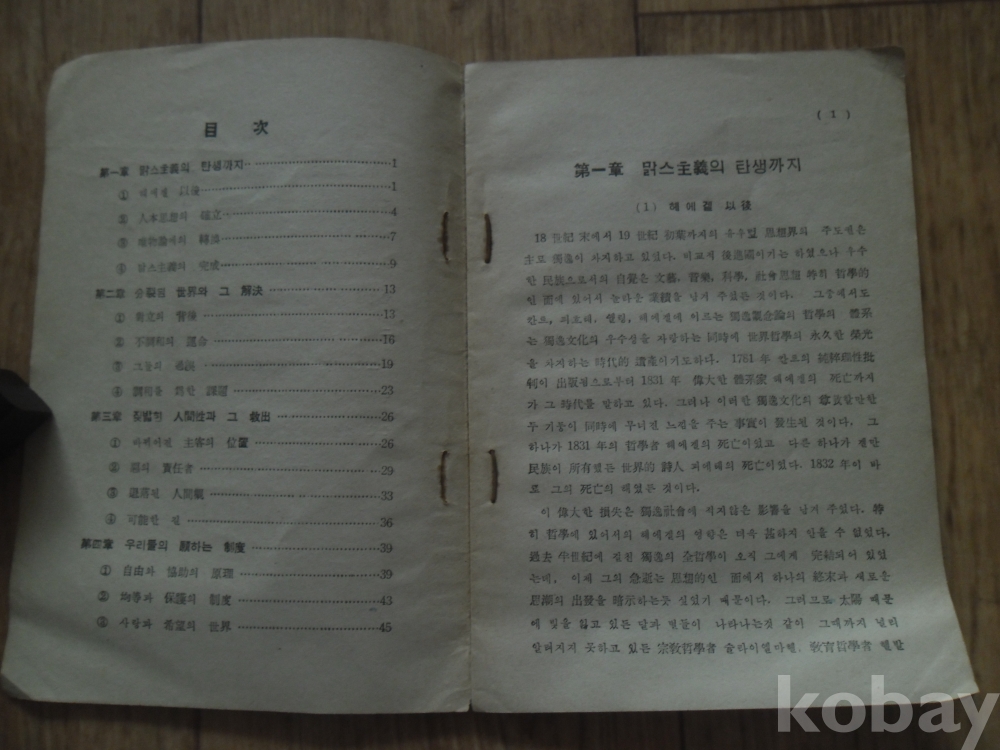 目 次
第一章 맑스主義의 탄생까지 1
① 헤에겔 以後 1
② 人本思想의 確立 4
③ 唯物論에의 轉換 7
④ 맑스主義의 完成 9
第二章 分裂된 世界와 그 解決 13
① 對立의 背後 13
② 不調和의 運命 16
③ 그들의 過誤 19
④ 調和를 爲한 課題 23
第三章 人間性과 그 救出 26
① 主客의 位置 26
② 惡의 責任者 29
③ 人間觀 33
④ 可能한 길 36
第四章 우리들의 願하는 制度 39
① 自由와 協助의 原理 39
② 均等과 保護의 制度 43
③ 사랑과 希望의 世界 45
( 1 )
第一章 맑스主義의 탄생까지
(1) 헤에겔 以後
18 世紀 末에서 19 世紀 初葉까지의 유우럽 思想界의 주도권은
主로 獨逸이 차지하고 있었다. 비교적 後進國이기는 하였으나 우수
한 民族으로서의 自覺은 文藝, 音樂, 科學, 社會思想 特히 哲學的
인 面에 있어서 놀라운 業績을 남겨 주었든 것이다. 그중에서도
칸트, 피히테, 셸링, 헤에겔에 이르는 獨逸觀念論의 哲學의 體系
는 獨逸文化의 우수성을 자랑하는 同時에 世界哲學의 永久한 榮光
을 차지하는 時代的 遺產이기도하다. 1781 年 칸트의 純粹理性批
判이 出版됨으로부터 1831 年 偉大한 體系家 헤에겔의 死亡까지
가 그 時代를 말하고 있다. 그러나 이러한 獨逸文化의
두 기둥이 同時에 무너진 느낌을 주는 事實이 發生된 것이다. 그
하나가 1831 年의 哲學者 헤에겔의 死亡이었고 다른 하나가 겔만
民族이 所有했든 世界的 詩人 꾀에테의 死亡이었다. 1832 年이 바
로 그의 死亡의 해였든 것이다.
이 偉大한 損失은 獨逸社會에 적지않은 影響을 남겨 주었다. 特
히 哲學에 있어서의 헤에겔의 영향은 더욱 말하지 않을 수 없었다.
過去 半世紀에 걸친 獨逸의 全哲學이 오직 그에게 完結되어 있었
는데, 이제 그의 急逝는 思想的인 面에서 하나의 終末과 새로운
思潮의 出發을 暗示하는듯 싶었기 때문이다. 그러므로 太陽 때문
에 빛을 잃고 있든 달과 별들이 나타나는것 같이 그때까지 널리
알려지지 못하고 있든 宗敎哲學者 슐라이엘마헬, 敎育哲學者 헬발
kobay